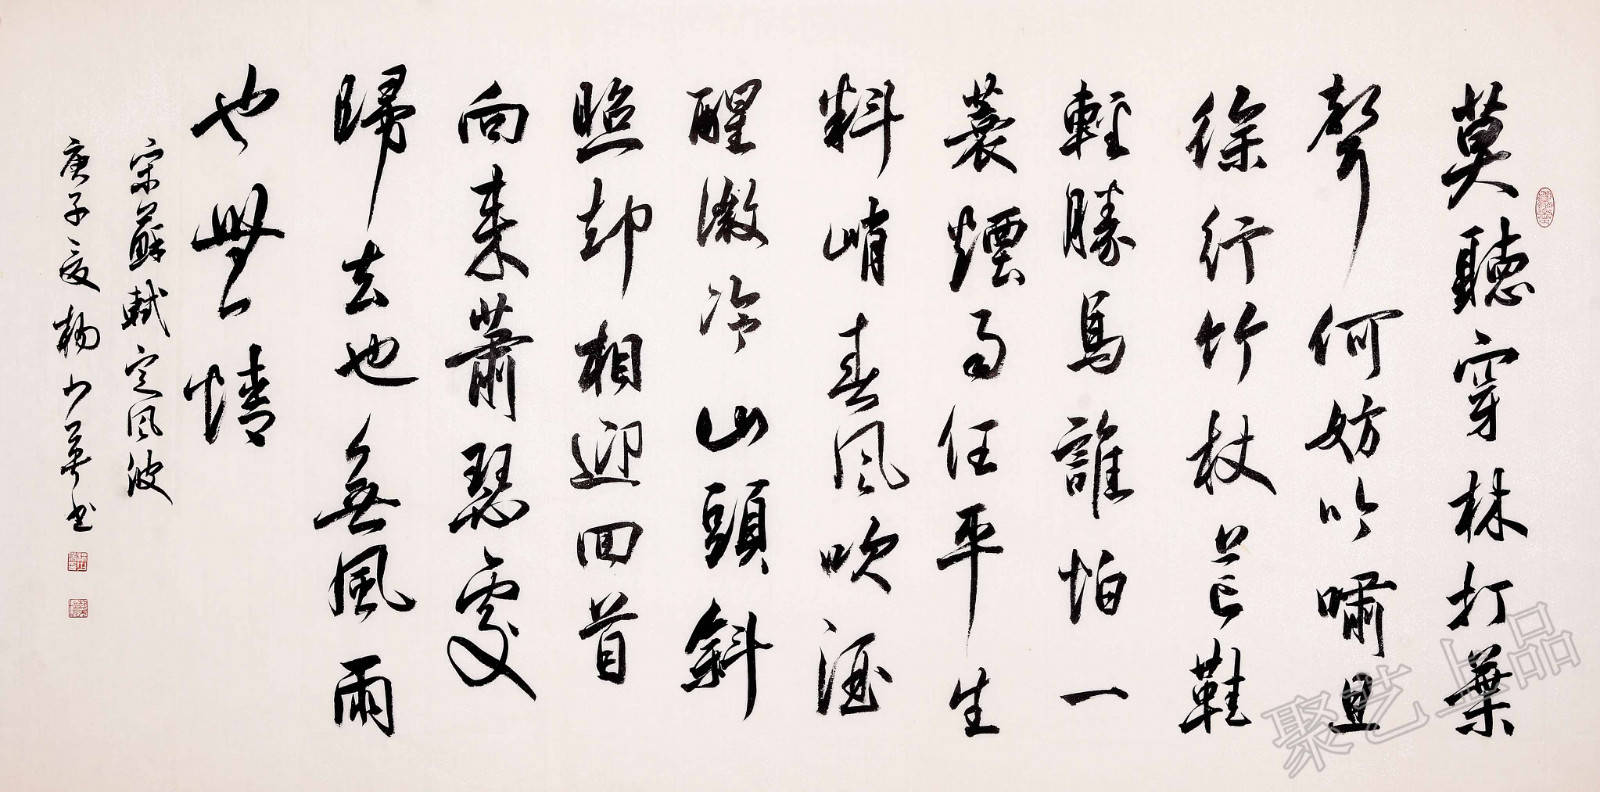 莫聽穿林打葉
聲何妨吟嘯且
徐行竹杖芒鞋
輕勝馬誰怕一
蓑煙雨任平生
料峭春风吹酒
醒微冷山頭斜
照却相迎回首
向来蕭瑟處
歸去也無風雨
也無情
宋蘇軾定风波
庚子夏楊少书
聚艺上品